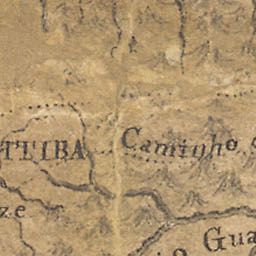 TTIBA
Caminho
ze
Gua